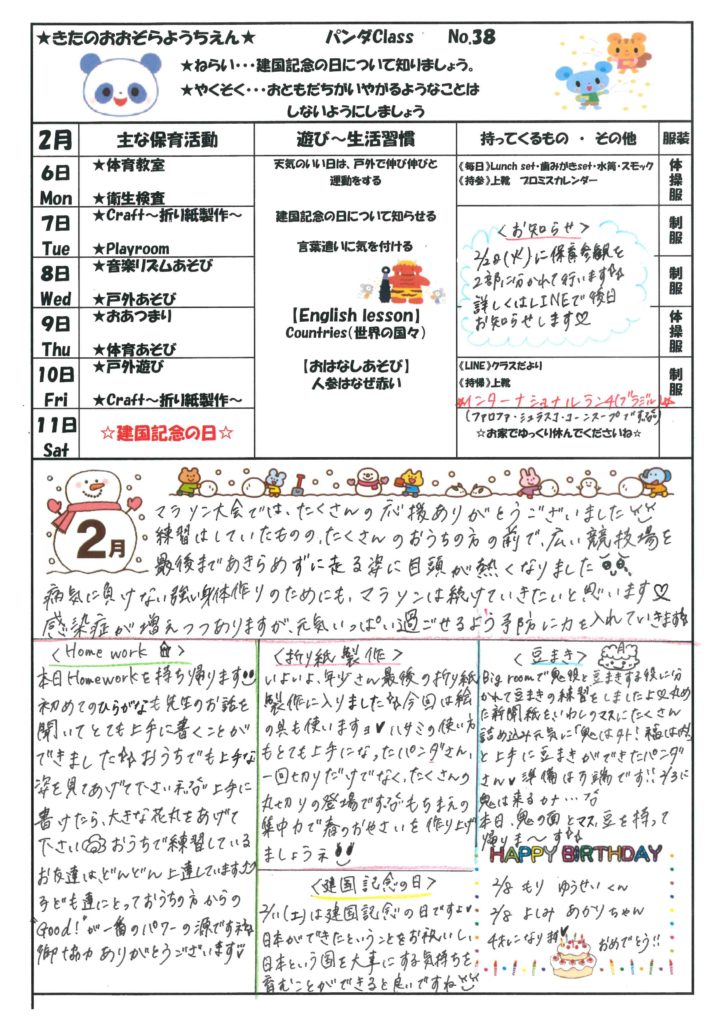 ★きたのおおぞらようちえん★ パンダClass No.38
★ねらい・・・建国記念の日について知りましょう。
★やくそく・・・おともだちがいやがるようなことは
しないようにしましょう
2月 主な保育活動 遊び～生活習慣 持ってくるもの ・ その他 服装
6日
Mon
★体育教室
★衛生検査
天気のいい日は、戸外で伸び伸びと
運動をする
《毎日》Lunch set・歯みがきset・水筒・スモック
《持参》上靴 プロミスカレンダー
体操服
7日
Tue
★Craft～折り紙製作～
★Playroom
建国記念の日について知らせる
言葉遣いに気を付ける
＜お知らせ＞
2/28(火)に保育参観を
2部に分かれて行います
詳しくはLINEで後日
お知らせします♡
制服
8日
Wed
★音楽リズムあそび
★戸外あそび
制服
9日
Thu
★おあつまり
★体育あそび
【English lesson】
Countries(世界の国々)
体操服
10日
Fri
★戸外遊び
★Craft～折り紙製作～
【おはなしあそび】
人参はなぜ赤い
《LINE》クラスだより
《持帰》上靴
☆インターナショナルランチ(ブラジル)☆
(ファロファ・シュラスコ・コーンスープです)
制服
11日
Sat
☆建国記念の日☆
☆お家でゆっくり休んでくださいね☆
2月
マラソン大会では、たくさんの応援ありがとうございました
練習はしていたものの、たくさんのおうちの方の前で、広い競技場を
最後まであきらめずに走る姿に目頭が熱くなりました
病気に負けない強い身体作りのためにも、マラソンは続けていきたいと思います♡
感染症が増えつつありますが、元気いっぱい過ごせるよう予防に力を入れていきます
＜Home work＞
本日Homeworkを持ち帰ります
初めてのひらがなも先生のお話を
聞いてとても上手に書くことが
できました おうちでも上手な
姿を見てあげて下さいネ 上手に
書けたら、大きな花丸をあげて
下さい おうちで練習している
お友達は、どんどん上達しています
子ども達にとっておうちの方からの
"Good!"が一番のパワーの源です
御協力ありがとうございます
＜折り紙製作＞
いよいよ、年少さん最後の折り紙
製作に入りました 今回は絵
の具も使いますョ♥ ハサミの使い方
もとても上手になったパンダさん、
一回切りだけでなく、たくさんの
丸切りの登場です もちまえの
集中力で春のおやさいを作り上げ
ましょうネ
＜建国記念の日＞
2/11(土)は建国記念の日ですよ
日本ができたということをお祝いし、
日本という国を大事にする気持ちを
育むことができると良いですね
＜豆まき＞
Big roomで鬼役と豆まきする役に分
かれて豆まきの練習をしましたよ 丸め
た新聞紙をいわしのマスにたくさん
詰め込み元気に「鬼は外！福は内」
と上手に豆まきができたパンダ
さん♥ 準備は万端です!! 2/3に
鬼は来るカナ…
本日、鬼の面とマス、豆を持って
帰りま～す
HAPPY BIRTHDAY
2/8 もり ゆうせいくん
2/8 よしみ あかりちゃん
4才になります
おめでとう!!